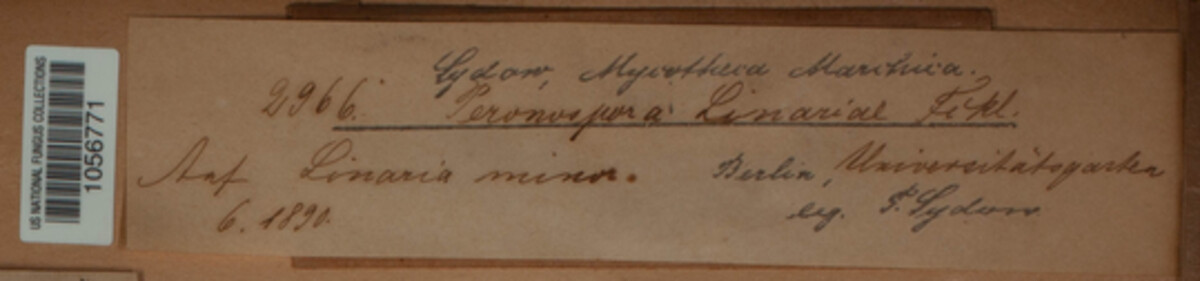 US NATIONAL FUNGUS COLLECTIONS
01056771
Sydow, Mycotheca Marchica.
2966. Peronospora Linariae Fckl.
Auf Linaria minor. Berlin, Universitätsgarten
6. 1890. leg. P. Sydow